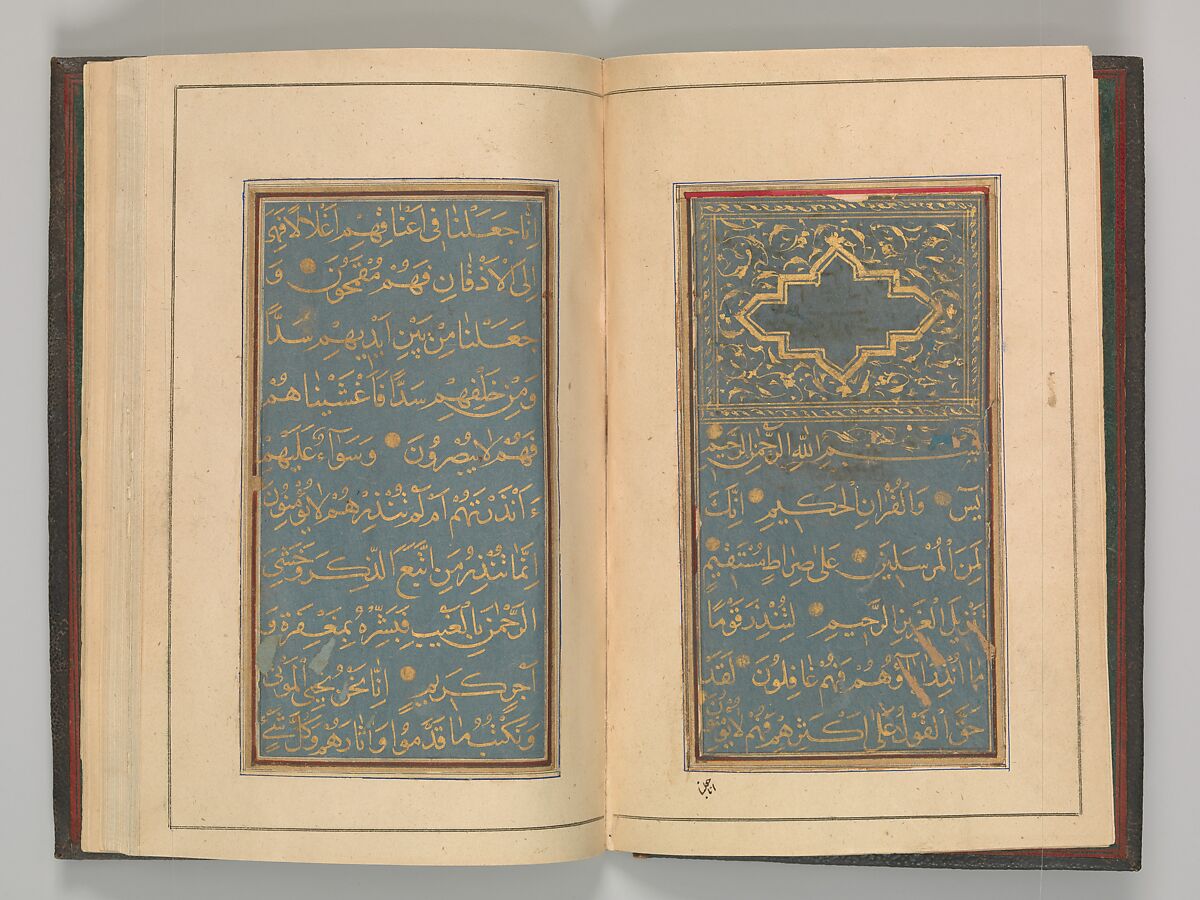 بسم الله الرحمن الرحيم
يس وَالْقُرْانِ الْحَكيمِ اِنَّكَ
لَمِنَ الْمُرْسَلينَ عَلى صِراطٍ مُسْتَقيمٍ
تَنْزيلَ الْعَزيزِ الرَّحيمِ لِتُنْذِرَ قَوْمًا
ما اُنْذِرَ اباؤُهُمْ فَهُمْ غافِلُونَ لَقَدْ
حَقَّ الْقَوْلُ عَلى اَكْثَرِهِمْ فَهُمْ لا يُؤْمِنُونَ
انا جعلنا
اِنّا جَعَلْنا فى اَعْناقِهِمْ اَغْلالًا فَهِىَ
اِلَى الْاَذْقانِ فَهُمْ مُقْمَحُونَ وَ
جَعَلْنا مِنْ بَيْنِ اَيْديهِمْ سَدًّا
وَمِنْ خَلْفِهِمْ سَدًّا فَاَغْشَيْناهُمْ
فَهُمْ لا يُبْصِرُونَ وَسَوآءٌ عَلَيْهِمْ
ءَاَنْذَرْتَهُمْ اَمْ لَمْ تُنْذِرْهُمْ لا يُؤْمِنُونَ
اِنَّما تُنْذِرُ مَنِ اتَّبَعَ الذِّكْرَ وَخَشِىَ
الرَّحْمنَ بِالْغَيْبِ فَبَشِّرْهُ بِمَغْفِرَةٍ وَ
اَجْرٍ كَريمٍ اِنّا نَحْنُ نُحْيِى الْمَوْتى
وَنَكْتُبُ ما قَدَّمُوا وَاثارَهُمْ وَكُلَّ شَىْءٍ